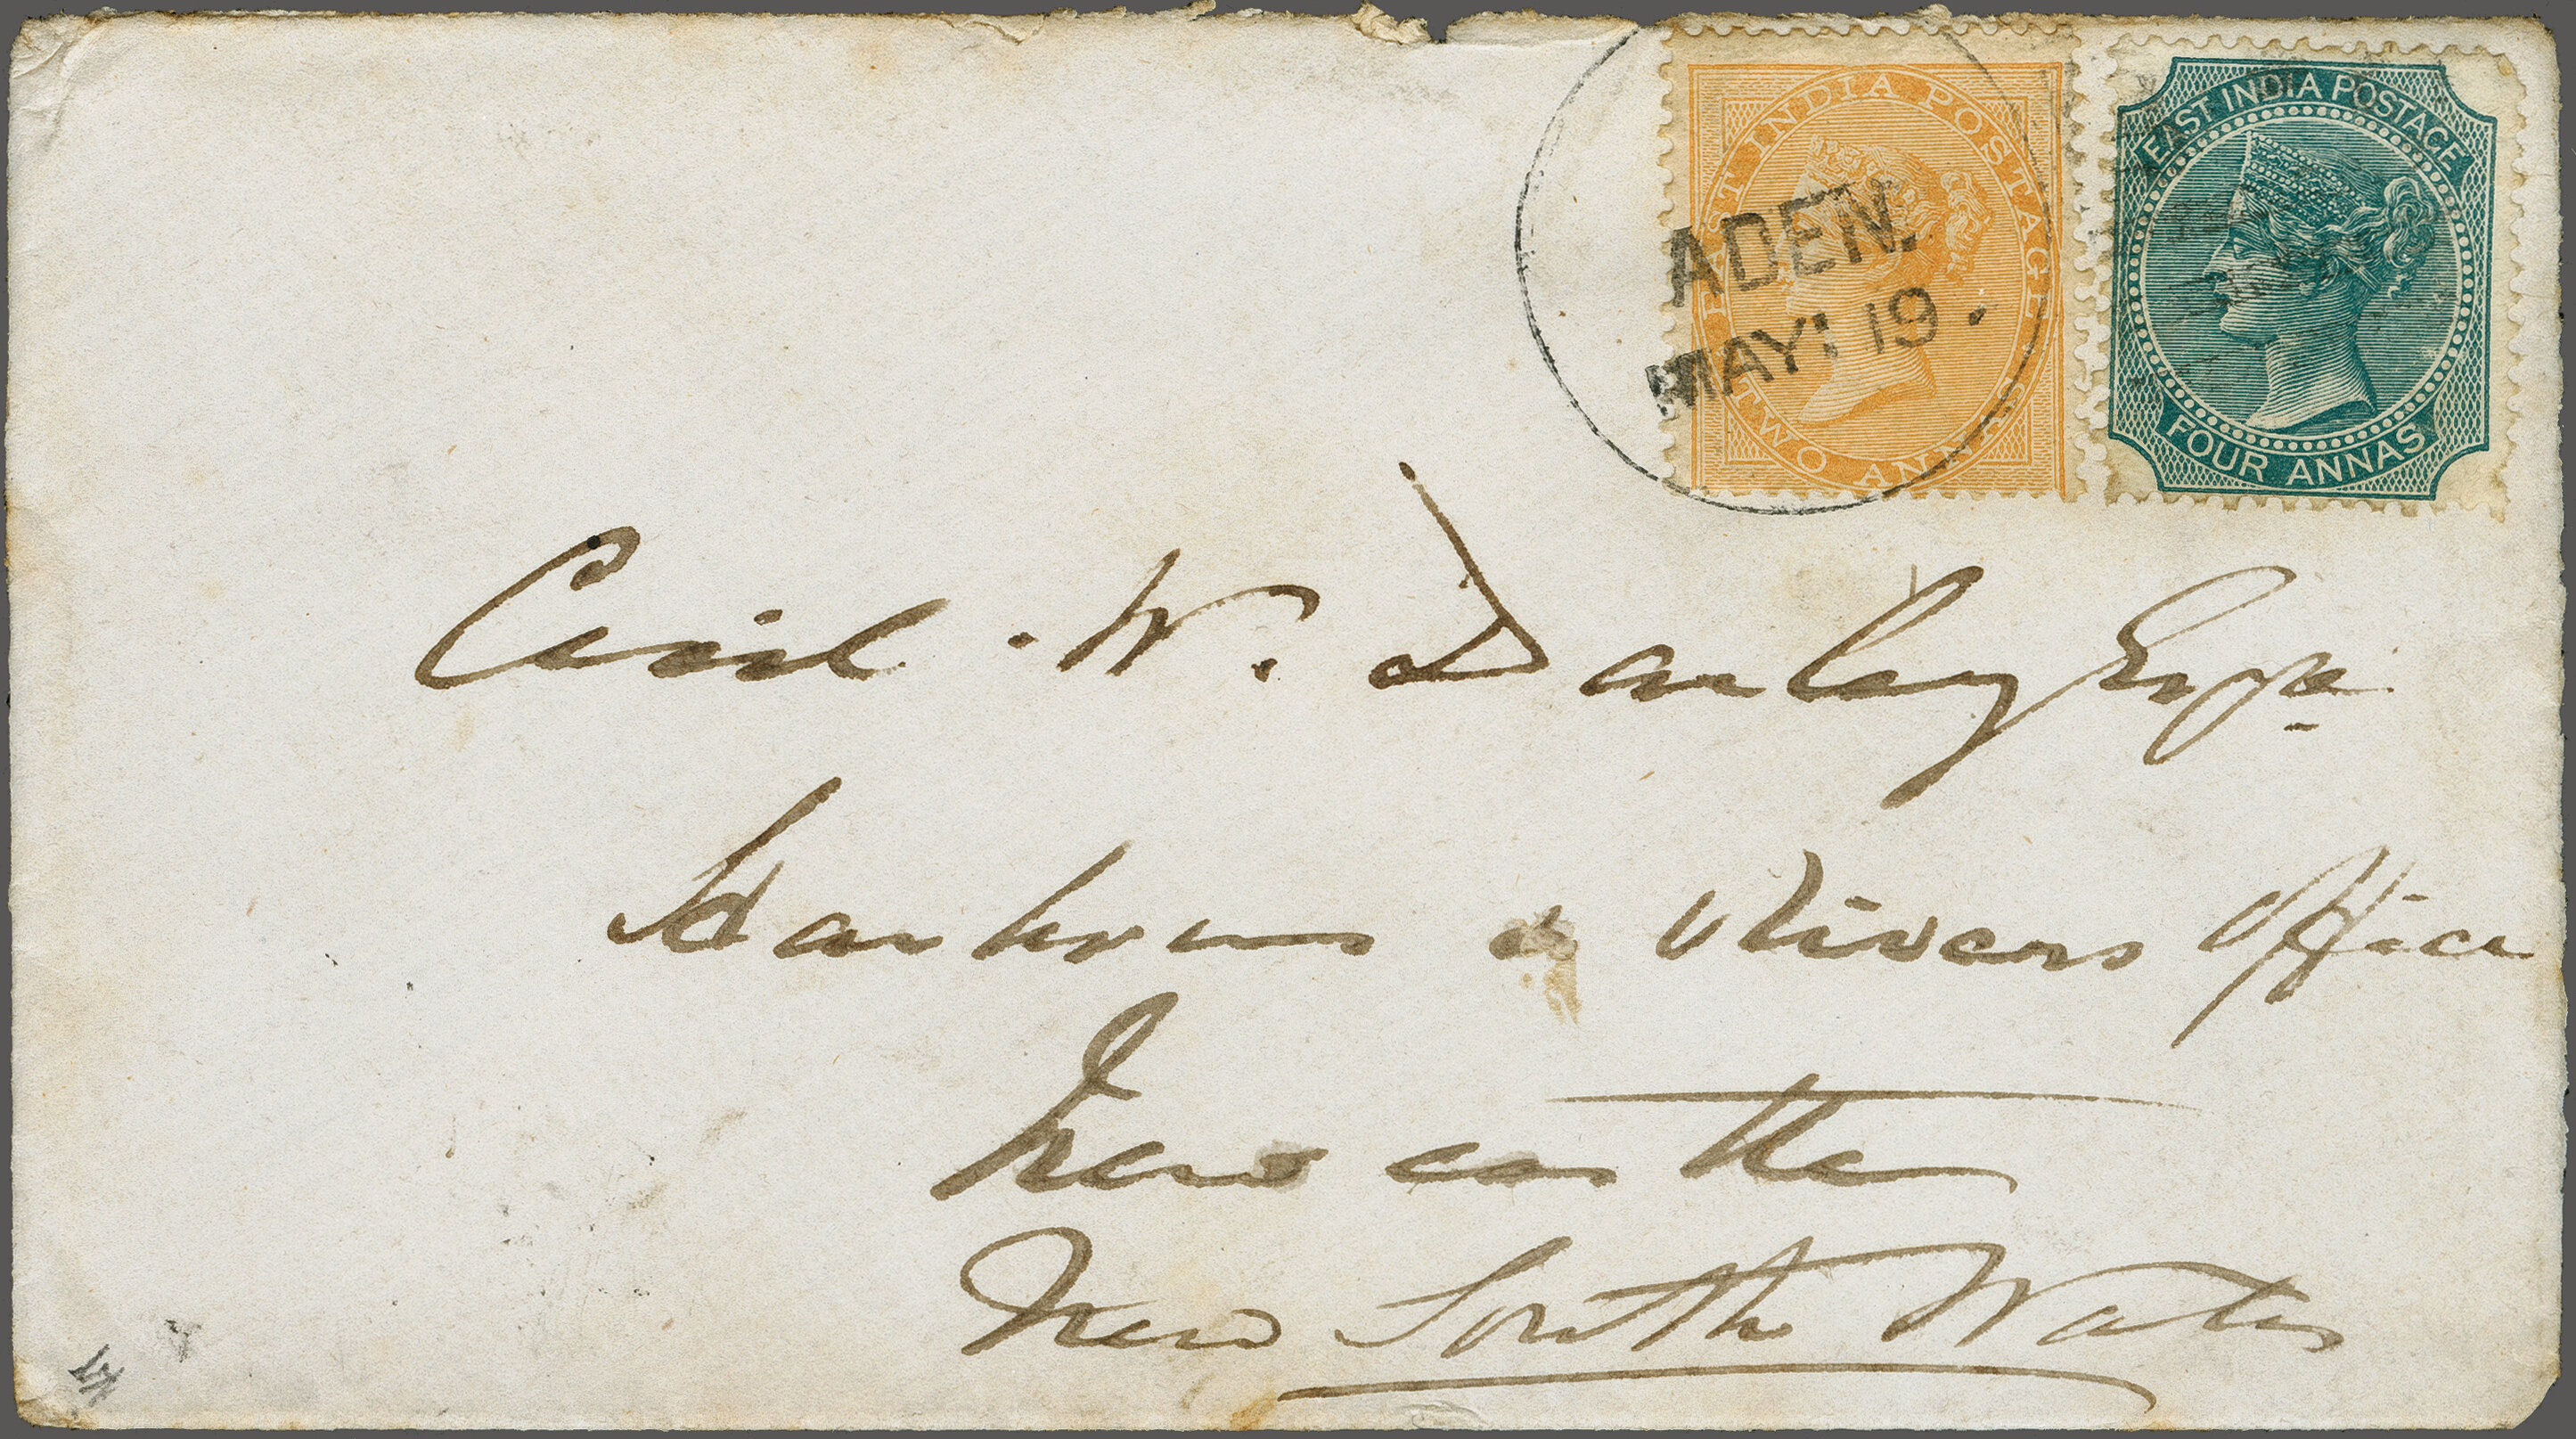 EAST INDIA POSTAGE
TWO ANNAS
ADEN.
MAY: 19.
EAST INDIA POSTAGE
FOUR ANNAS
Cecil. W. Darley Esqre
Harbours & Rivers Office
Newcastle
New South Wales